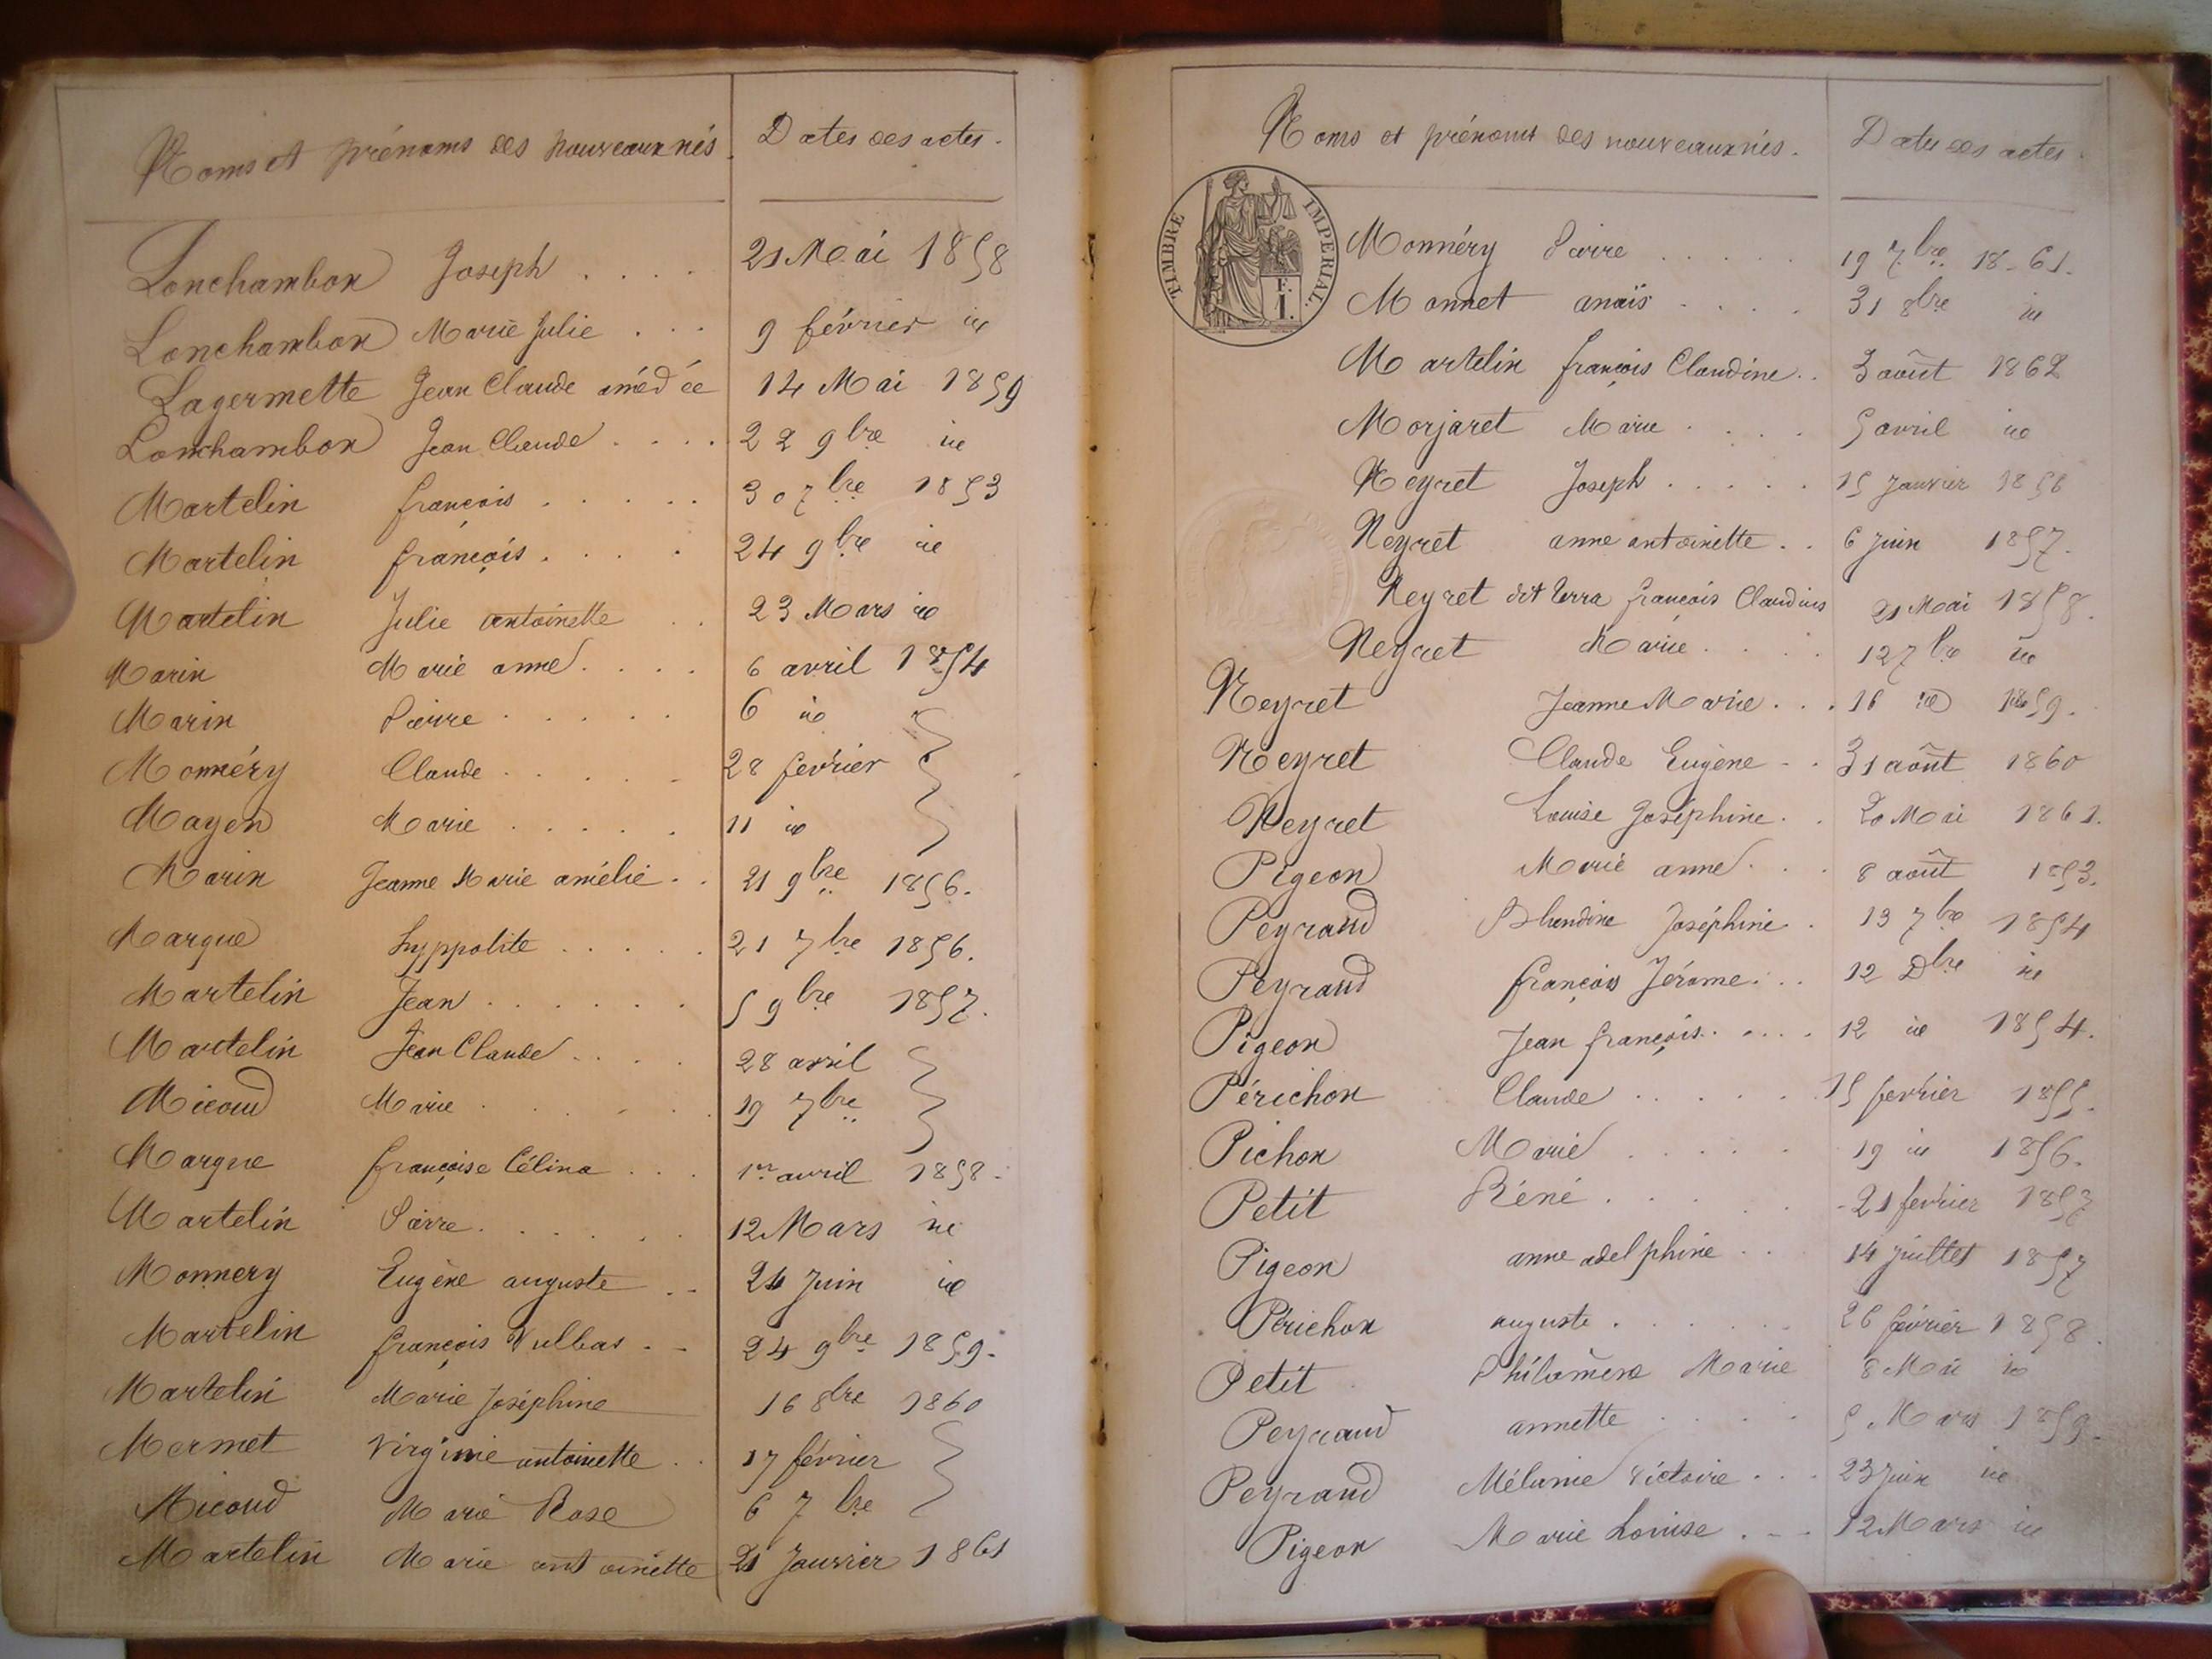 Noms et prénoms des nouveaux nés. Dates des actes.
Lonchambon Joseph . . . . 21 Mai 1858
Lonchambon Marie Julie . . . 9 février id
Lagermette Jean Claude amédée 14 Mai 1859
Lonchambon Jean Claude . . . . 22 9bre id
Martelin françois . . . . . 30 7bre 1853
Martelin françois . . . . 24 9bre id
Martelin Julie antoinette . . 23 Mars id
Marin Marie anne . . . . 6 avril 1854
Marin Pierre . . . . . 6 id
Monnéry Claude . . . . . 28 février
Mayen Marie . . . . . 11 id
Marin Jeanne Marie amélie . . 21 9bre 1856.
Margue hyppolite . . . . . 21 7bre 1856.
Martelin Jean . . . . . . 5 9bre 1857.
Martelin Jean Claude . . . . 28 avril
Micoud Marie . . . . . 19 7bre
Margue françoise Célina . . . 1er avril 1858.
Martelin Pierre . . . . . . 12 Mars id
Monnery Eugène auguste . . 24 Juin id
Martelin françois Vulbas . . 24 9bre 1859.
Martelin Marie Joséphine 16 8bre 1860
Mermet Virginie antoinette . . 17 février
Micoud Marie Rose 6 7bre
Martelin Marie antoinette 21 Janvier 1861
Noms et prénoms des nouveaux nés. Dates des actes.
TIMBRE IMPERIAL.
F.
1.
Monnéry Pierre . . . . . 19 7bre 18-61.
Monnet anaïs . . . . 31 8bre id
Martelin françois Claudine . . 3 août 1862
Morjaret Marie . . . . 5 avril id
Neyret Joseph . . . . . 15 Janvier 1856
Neyret anne antoinette . . 6 Juin 1857.
Neyret dit terra françois Claudius 21 Mai 1858.
Neyret Marie . . . . 12 7bre id
Neyret Jeanne Marie . . . 16 id 1859.
Neyret Claude Eugène . . 31 août 1860
Neyret Louise Joséphine . . 20 Mai 1861.
Pigeon Marie anne . . . 8 août 1853.
Peyraud Blandine Joséphine . 13 7bre 1854
Peyraud françois Jérome . . . 12 Dbre id
Pigeon Jean françois . . . . . 12 id 1854.
Périchon Claude . . . . . 15 février 1855.
Pichon Marie . . . . . 19 id 1856.
Petit Réné . . . . . 21 février 1857
Pigeon anne adelphine . . 14 juillet 1857
Périchon auguste . . . . . 26 février 1858.
Petit Philomène Marie 8 Mai id
Peyraud annette . . . . 5 Mars 1859.
Peyraud Mélanie Victoire . . . 23 Juin id
Pigeon Marie Louise . . . 12 Mars id